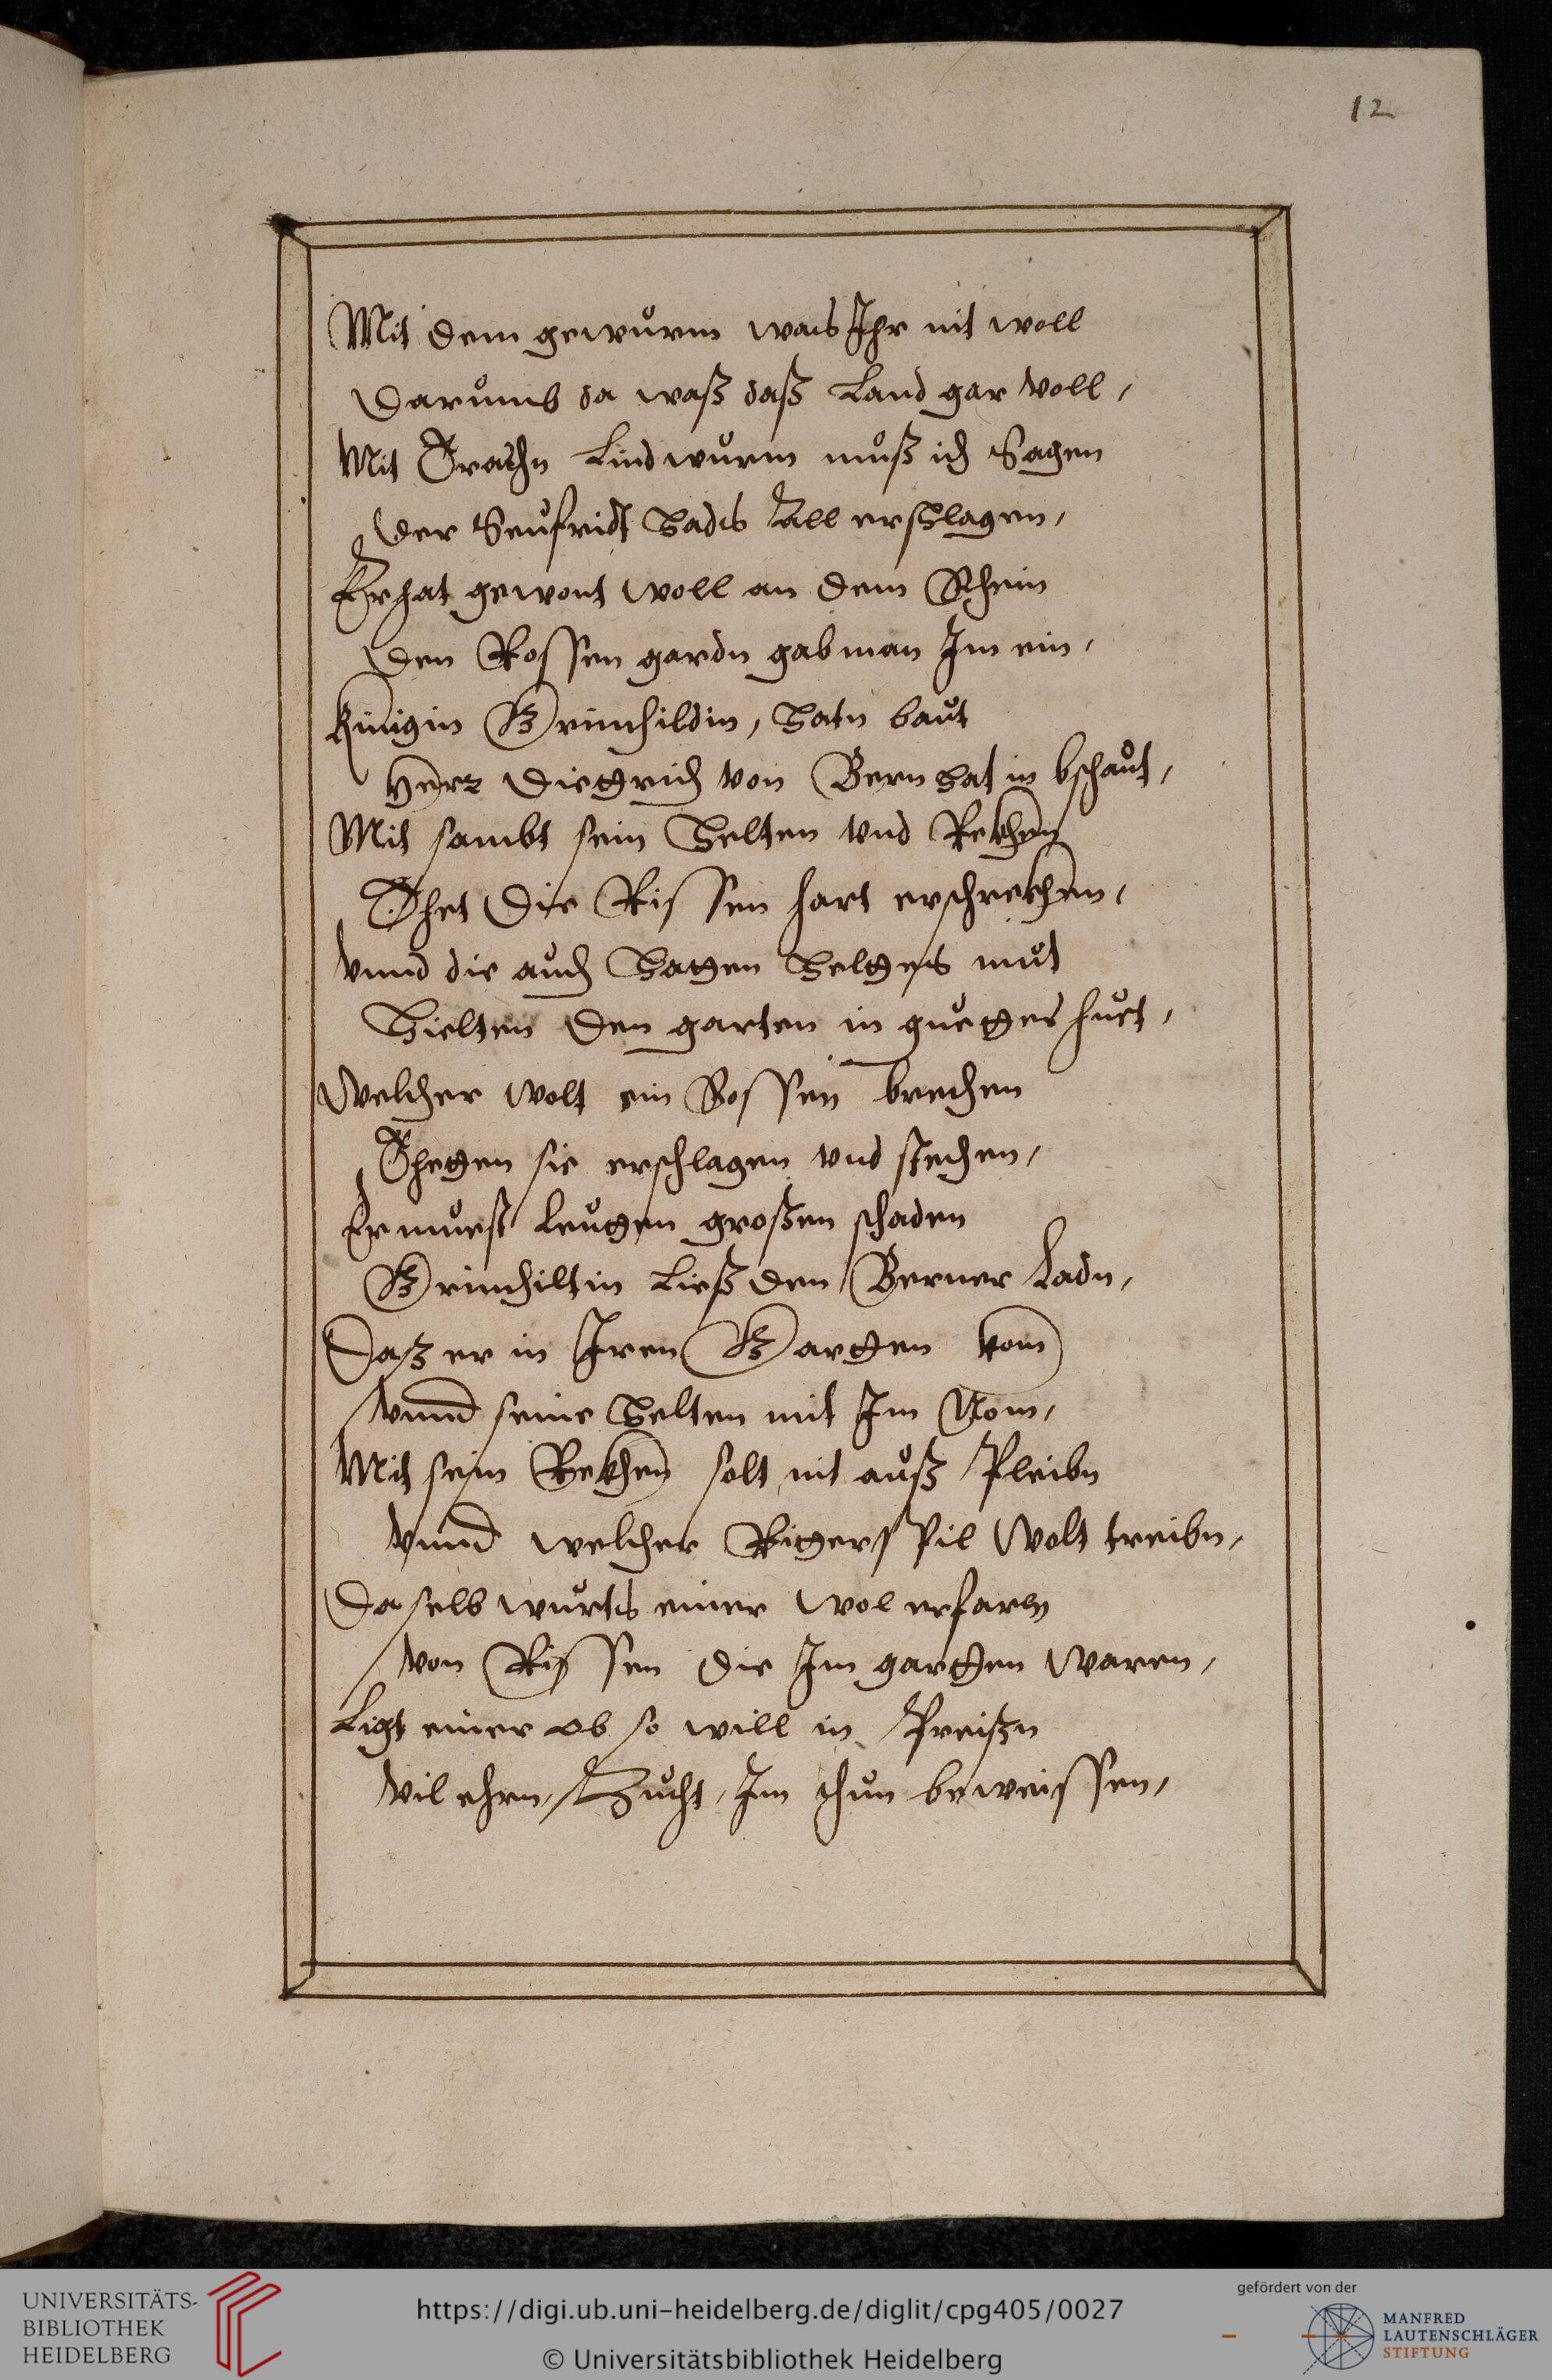 12
Mit dem gewurm was Ihr nit woll
Darumb da waß daß Land gar voll,
Mit Trachn Lindwurm muß ich Sagen
der Seufridt Hads all erschlagen,
Er hat gewont woll an dem Rhein
den Rossen gardn gab man Im ein,
Künigin Grimhildin, Hatn baut
Herr Dietrich von Bern hat in bschaut,
Mit sambt sein Helten vnd Rekhen
Thet Die Rissen hart erschrekhen,
Vnnd die auch Hatten Heltes mut
Hielten den garten in guetter huet,
Welcher wolt ein Rossen brechen
Theten sie erschlagen vnd stechen,
Er muest leiden großen schaden
Grimhiltin Ließ den Berner Ladn,
Daß er in Iren Gartten kom
Vnnd seine Helten mit Im Nom,
Mit sein Rekhen solt nit auß Pleibn
Vnnd welcher Ritterspil Wolt treibn,
Da selb wurts einer wol erfarn
Von Rissen die Im gartten waren,
Ligt einer ob so will in Preißn
Vil ehrn, Zucht, Im thun beweissen,
UNIVERSITÄTS-
BIBLIOTHEK
HEIDELBERG
https://digi.ub.uni-heidelberg.de/diglit/cpg405/0027
© Universitätsbibliothek Heidelberg
gefördert von der
MANFRED
LAUTENSCHLÄGER
STIFTUNG